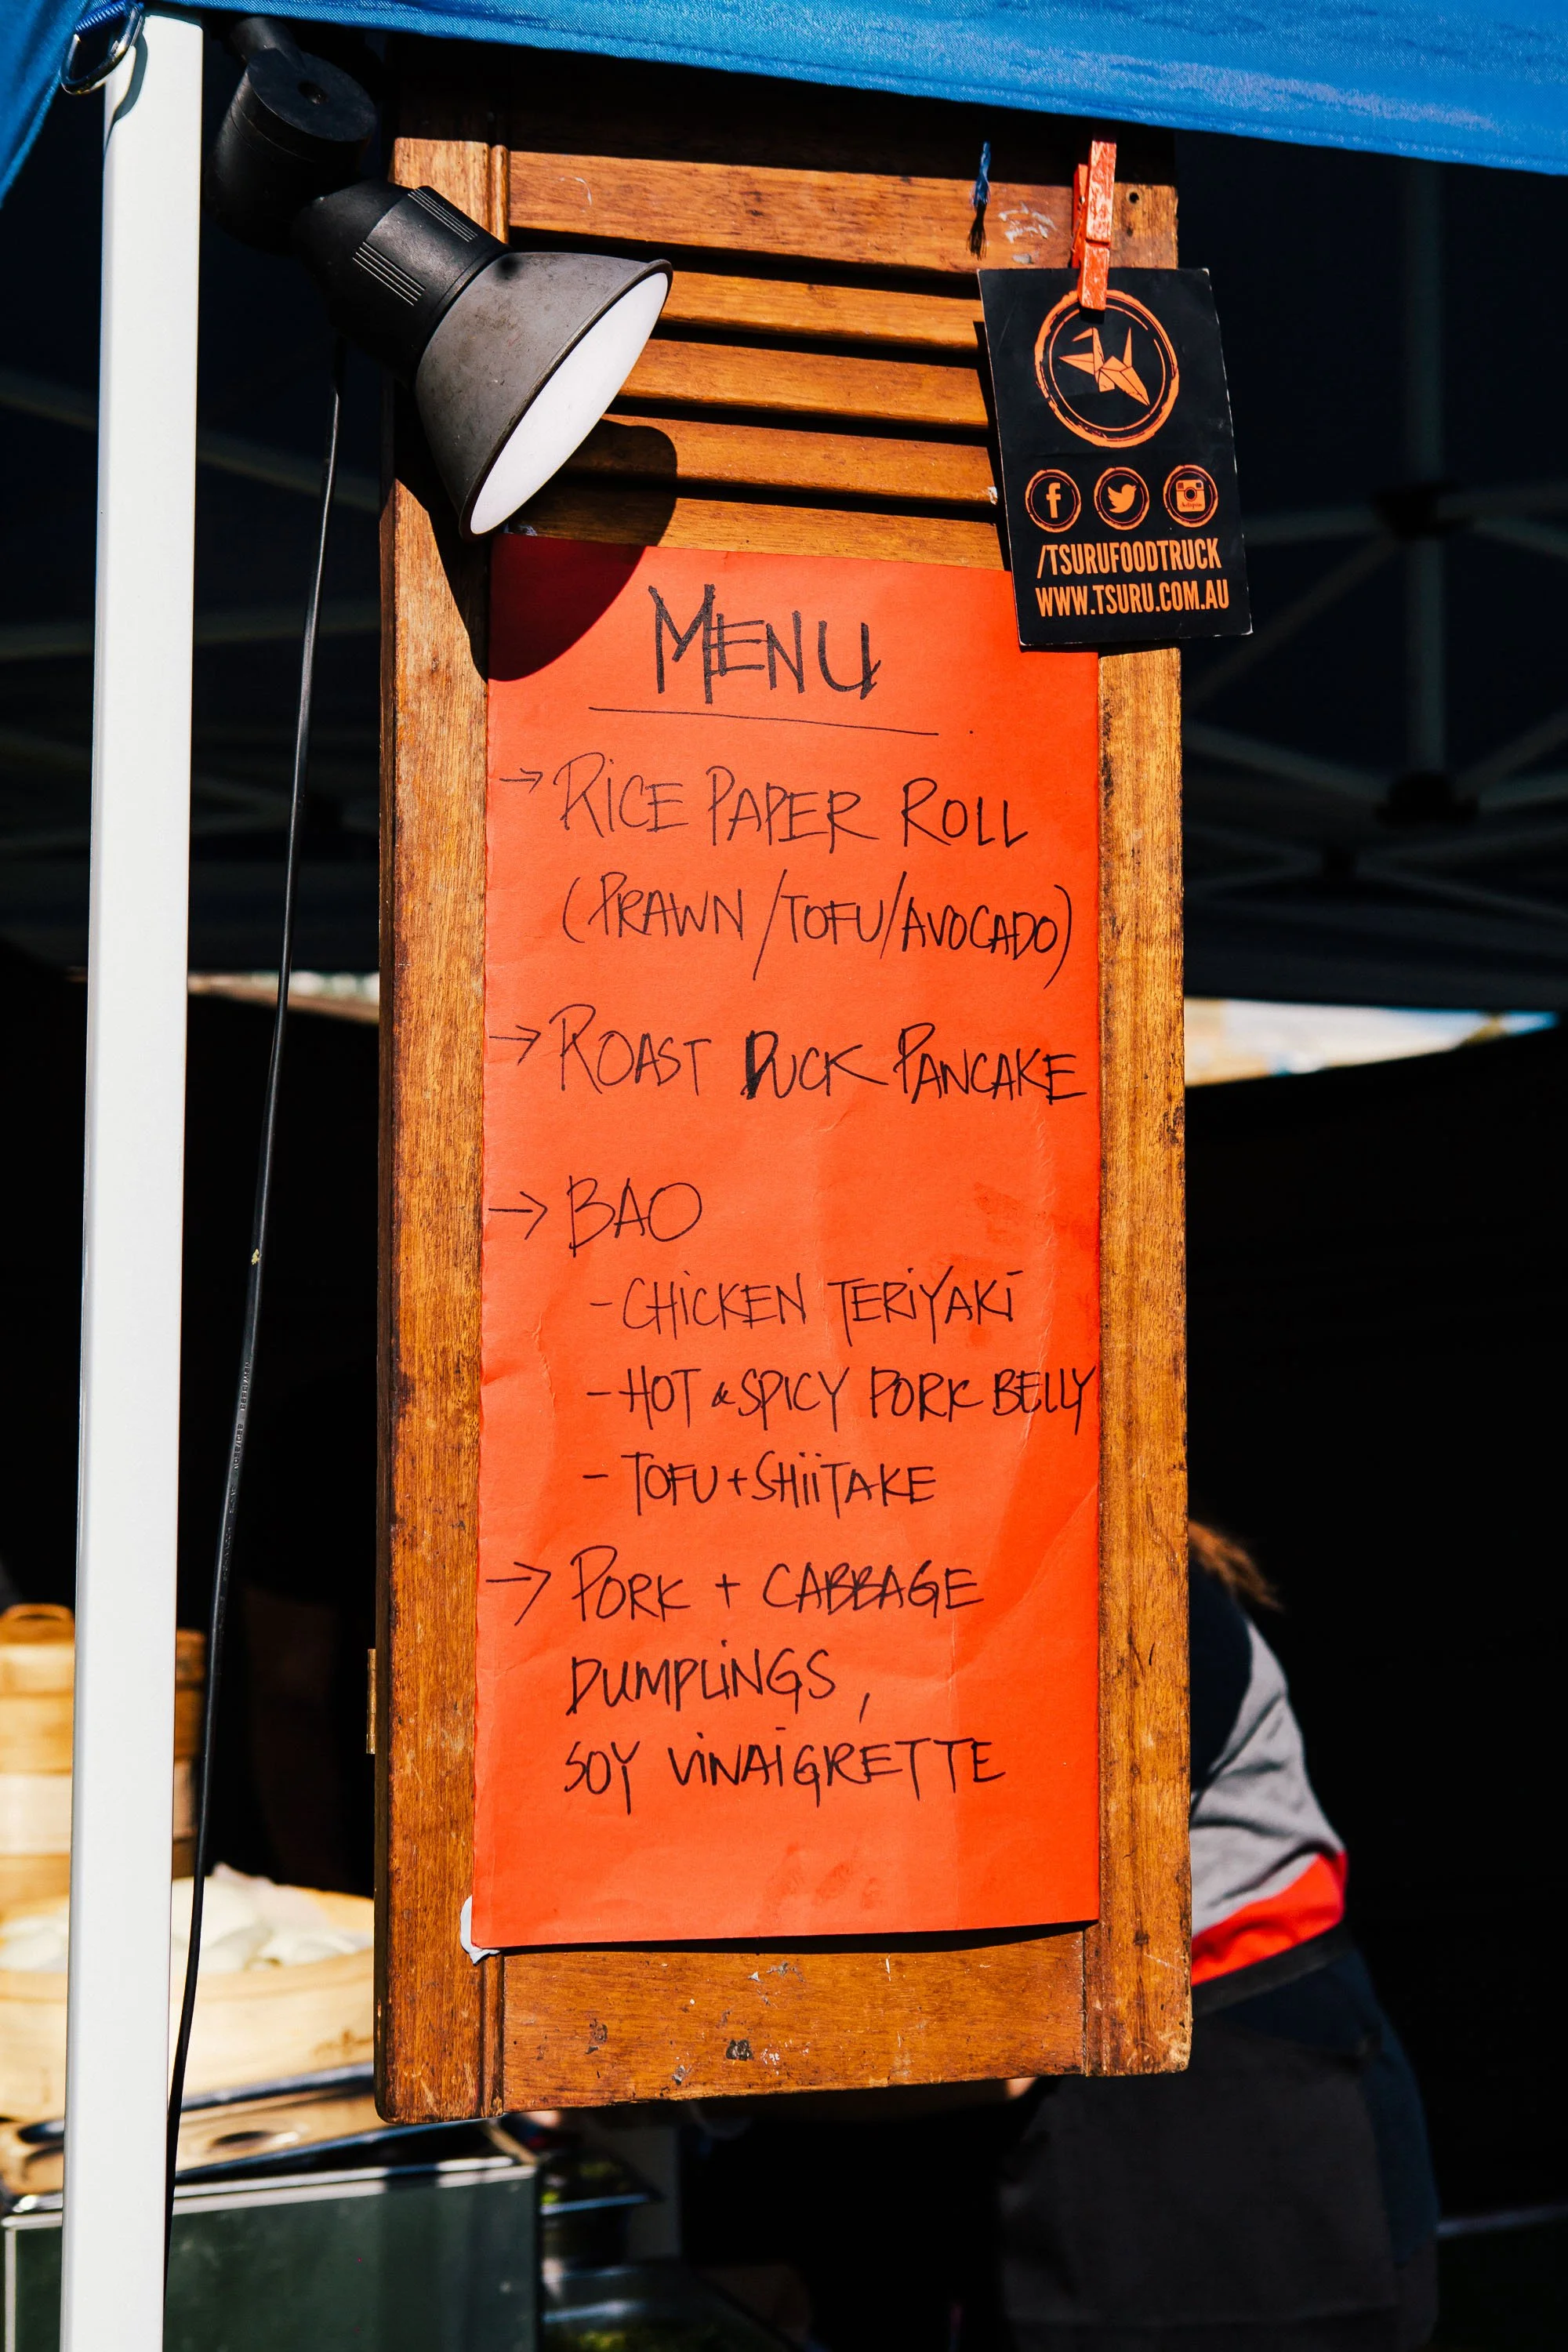 /TSURUFOODTRUCK
WWW.TSURU.COM.AU
MENU
→ RICE PAPER ROLL
(PRAWN/TOFU/AVOCADO)
→ ROAST DUCK PANCAKE
→ BAO
- CHICKEN TERIYAKI
- HOT & SPICY PORK BELLY
- TOFU + SHIITAKE
→ PORK + CABBAGE
DUMPLINGS,
SOY VINAIGRETTE